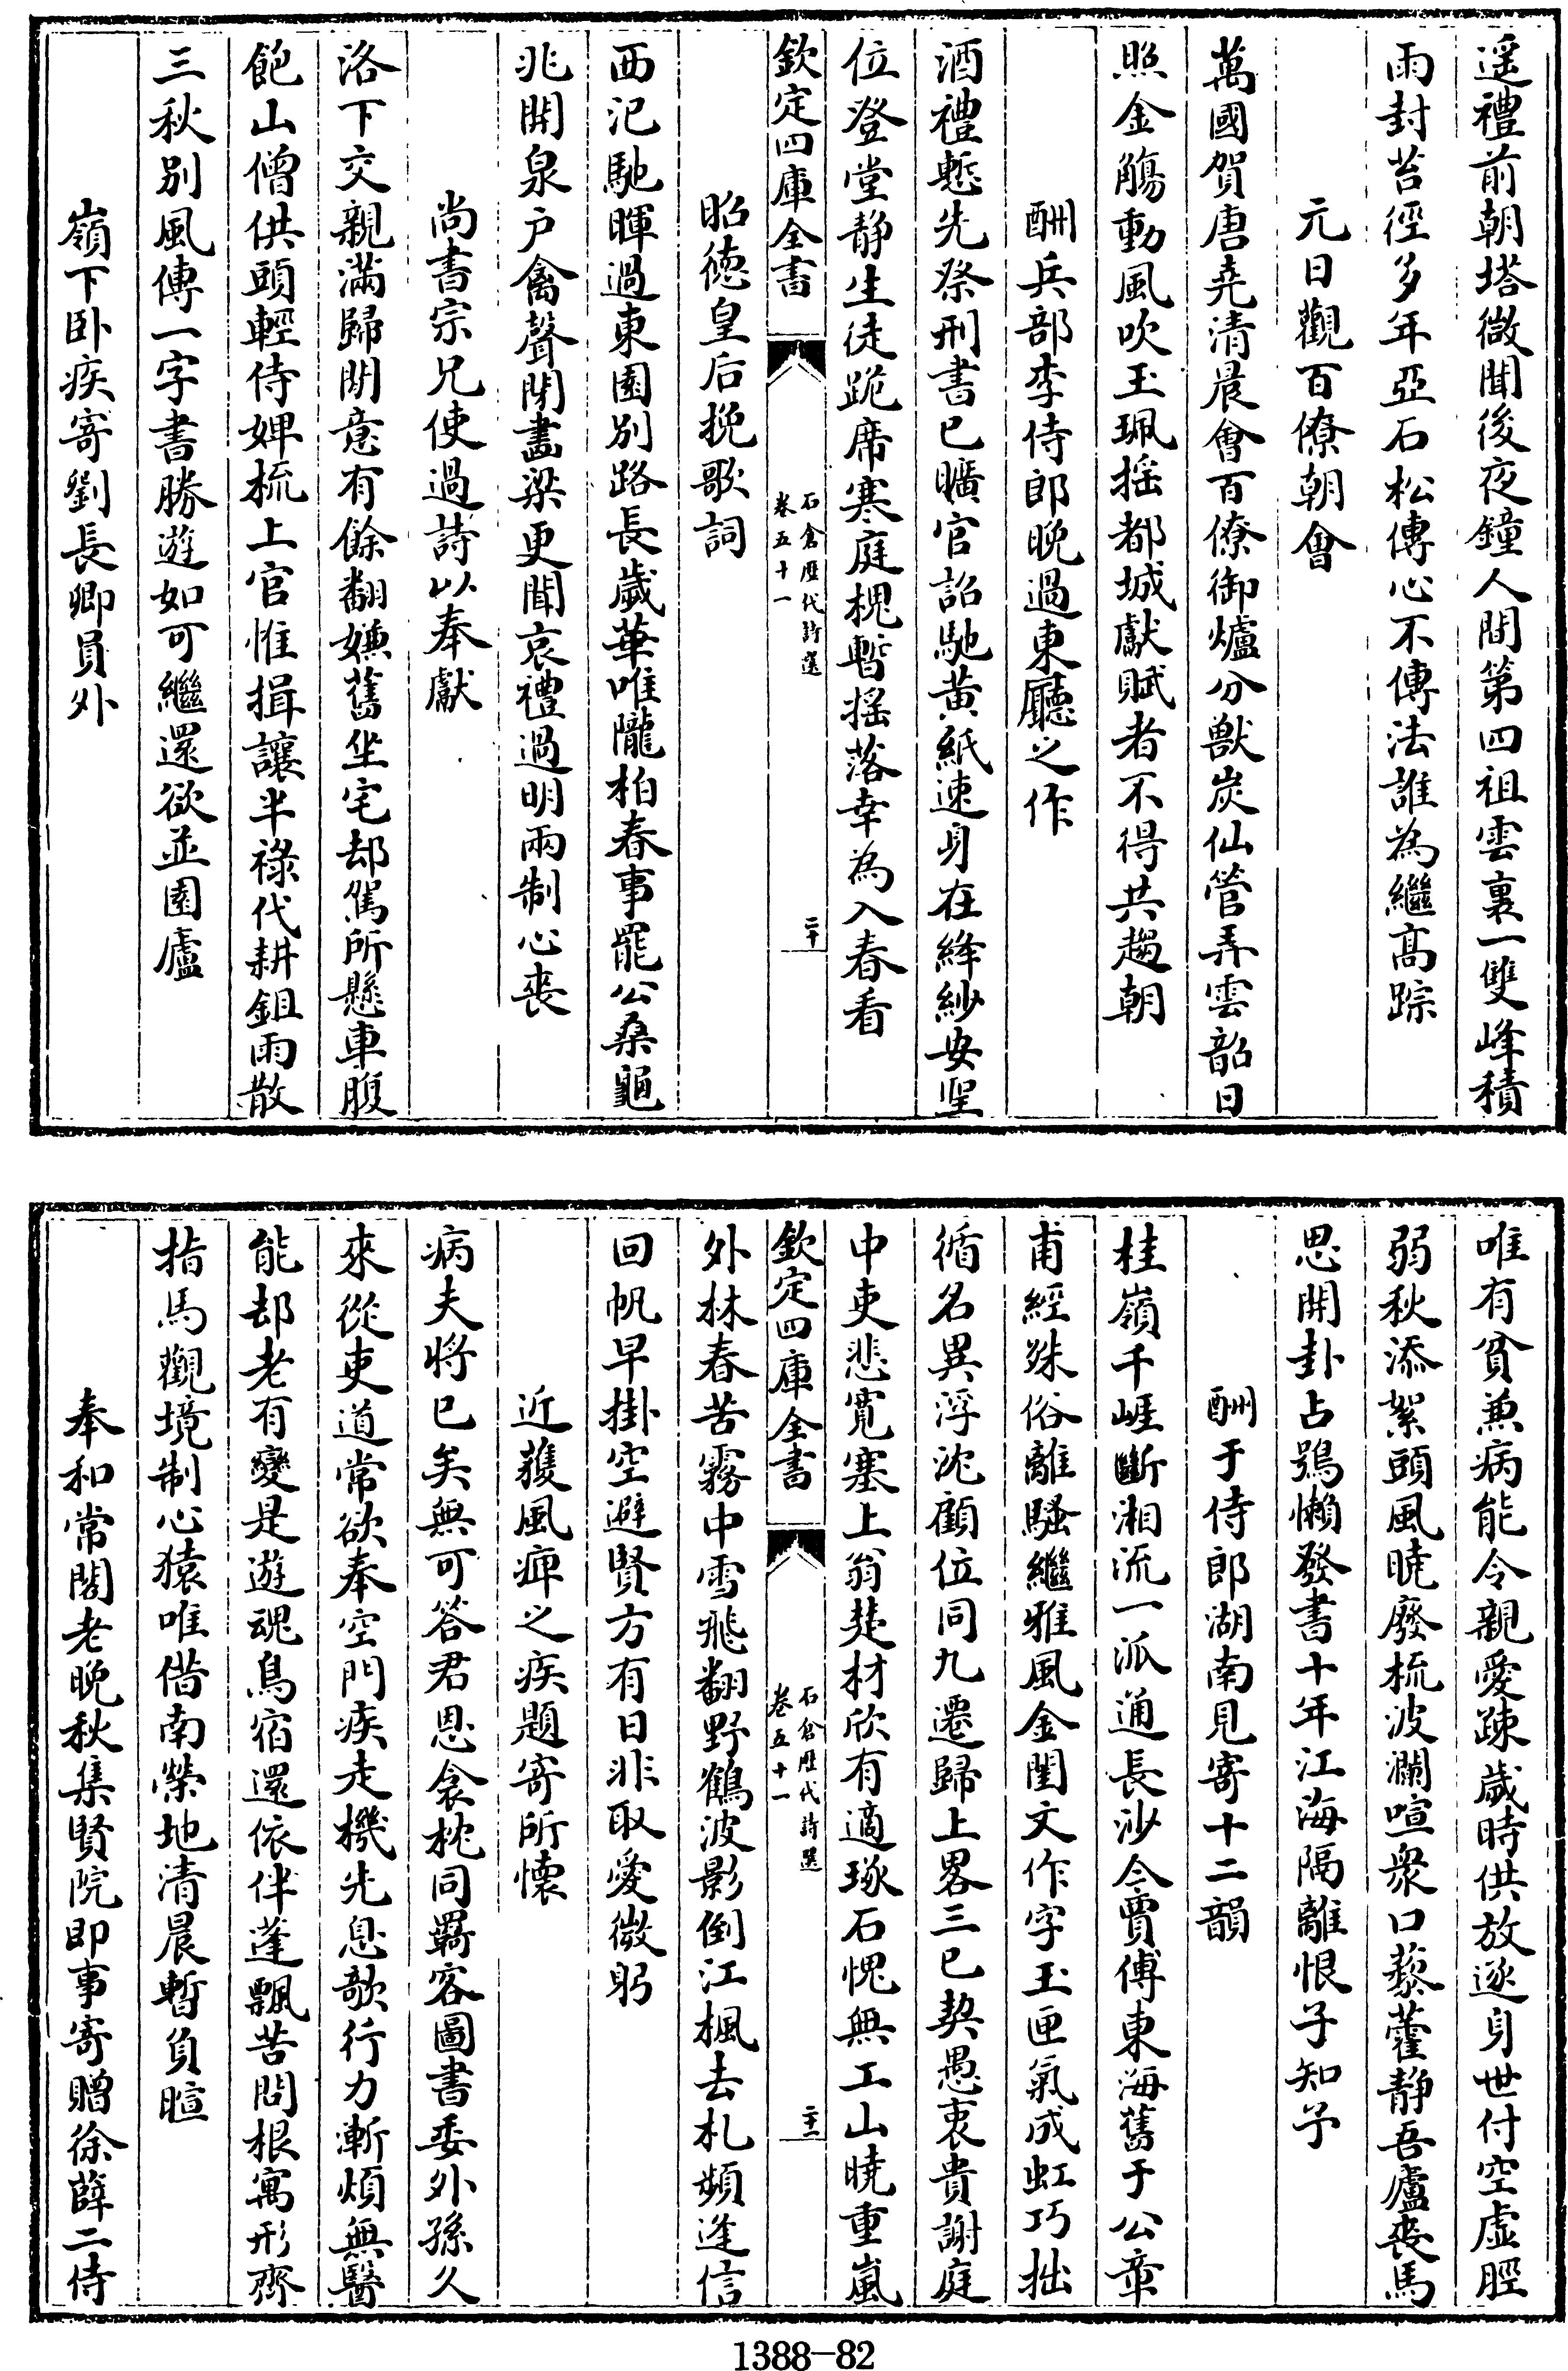 遥禮前朝塔微聞後夜鐘人間第四祖雲裏一雙峰積
雨封苔徑多年亞石松傳心不傳法誰為繼髙踪
元日觀百僚朝會
萬國賀唐堯清晨會百僚御爐分獸炭仙管弄雲韶日
照金觴動風吹玉珮揺都城獻賦者不得共趨朝
酬兵部李侍郎晚過東廳之作
酒禮慙先祭刑書已曠官詔馳黄紙速身在絳紗安聖
位登堂静生徒跪席寒庭槐暫揺落幸為入春看
欽定四庫全書
石倉歴代詩選
卷五十一
二十
昭徳皇后挽歌詞
西汜馳暉過東園别路長歲華唯隴柏春事罷公桑龜
兆開泉户禽聲閉畵梁更聞哀禮過明兩制心喪
尚書宗兄使過詩以奉獻
洛下交親滿歸閒意有餘翻嫌舊坐宅却駕所懸車腹
飽山僧供頭輕侍婢梳上官惟揖讓半祿代耕鉏雨散
三秋别風傳一字書勝遊如可繼還欲並園廬
嶺下卧疾寄劉長卿員外
唯有貧兼病能令親愛疎歲時供放逐身世付空虚脛
弱秋添絮頭風曉廢梳波瀾喧衆口藜藿静吾廬喪馬
思開卦占鴞懶發書十年江海隔離恨子知予
酬于侍郎湖南見寄十二韻
桂嶺千崕斷湘流一派通長沙今賈傅東海舊于公章
甫經殊俗離騷繼雅風金閨文作字玉匣氣成虹巧拙
循名異浮沈顧位同九遷歸上畧三已契愚衷貴謝庭
中吏悲寛塞上翁楚材欣有適琢石愧無工山曉重嵐
欽定四庫全書
石倉歴代詩選
卷五十一
二十一
外林春苦霧中雪飛翻野鶴波影倒江楓去札頻逢信
回帆早掛空避賢方有日非取愛微躬
近獲風痺之疾題寄所懷
病夫將已矣無可答君恩衾枕同羈客圖書委外孫久
來從吏道常欲奉空門疾走機先息欹行力漸煩無醫
能却老有變是遊魂鳥宿還依伴蓬飄苦問根寓形齊
指馬觀境制心猿唯借南榮地清晨暫負暄
奉和常閣老晚秋集賢院即事寄贈徐薛二侍
1388-82